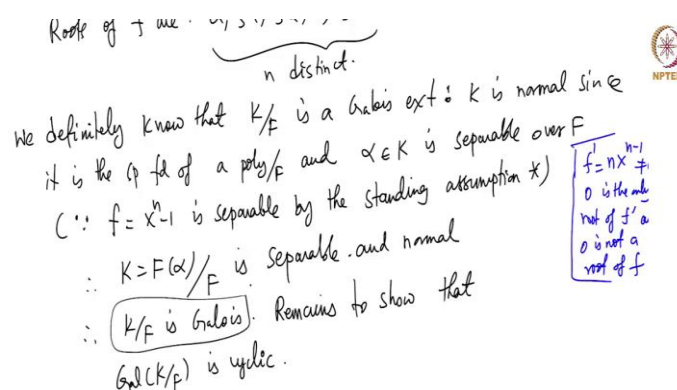 Roots of f are :
n distinct.
NPTEL
We definitely know that K/F is a Galois ext : K is normal since
it is the sp fd of a poly/F and α ∈ K is separable over F
(∵ f = xⁿ-1 is separable by the standing assumption *)
∴ K = F(α)/F is separable and normal
∴ K/F is Galois. Remains to show that
Gal(K/F) is cyclic.
f' = nxⁿ⁻¹ ≠
0 is the only
root of f'
0 is not a
root of f